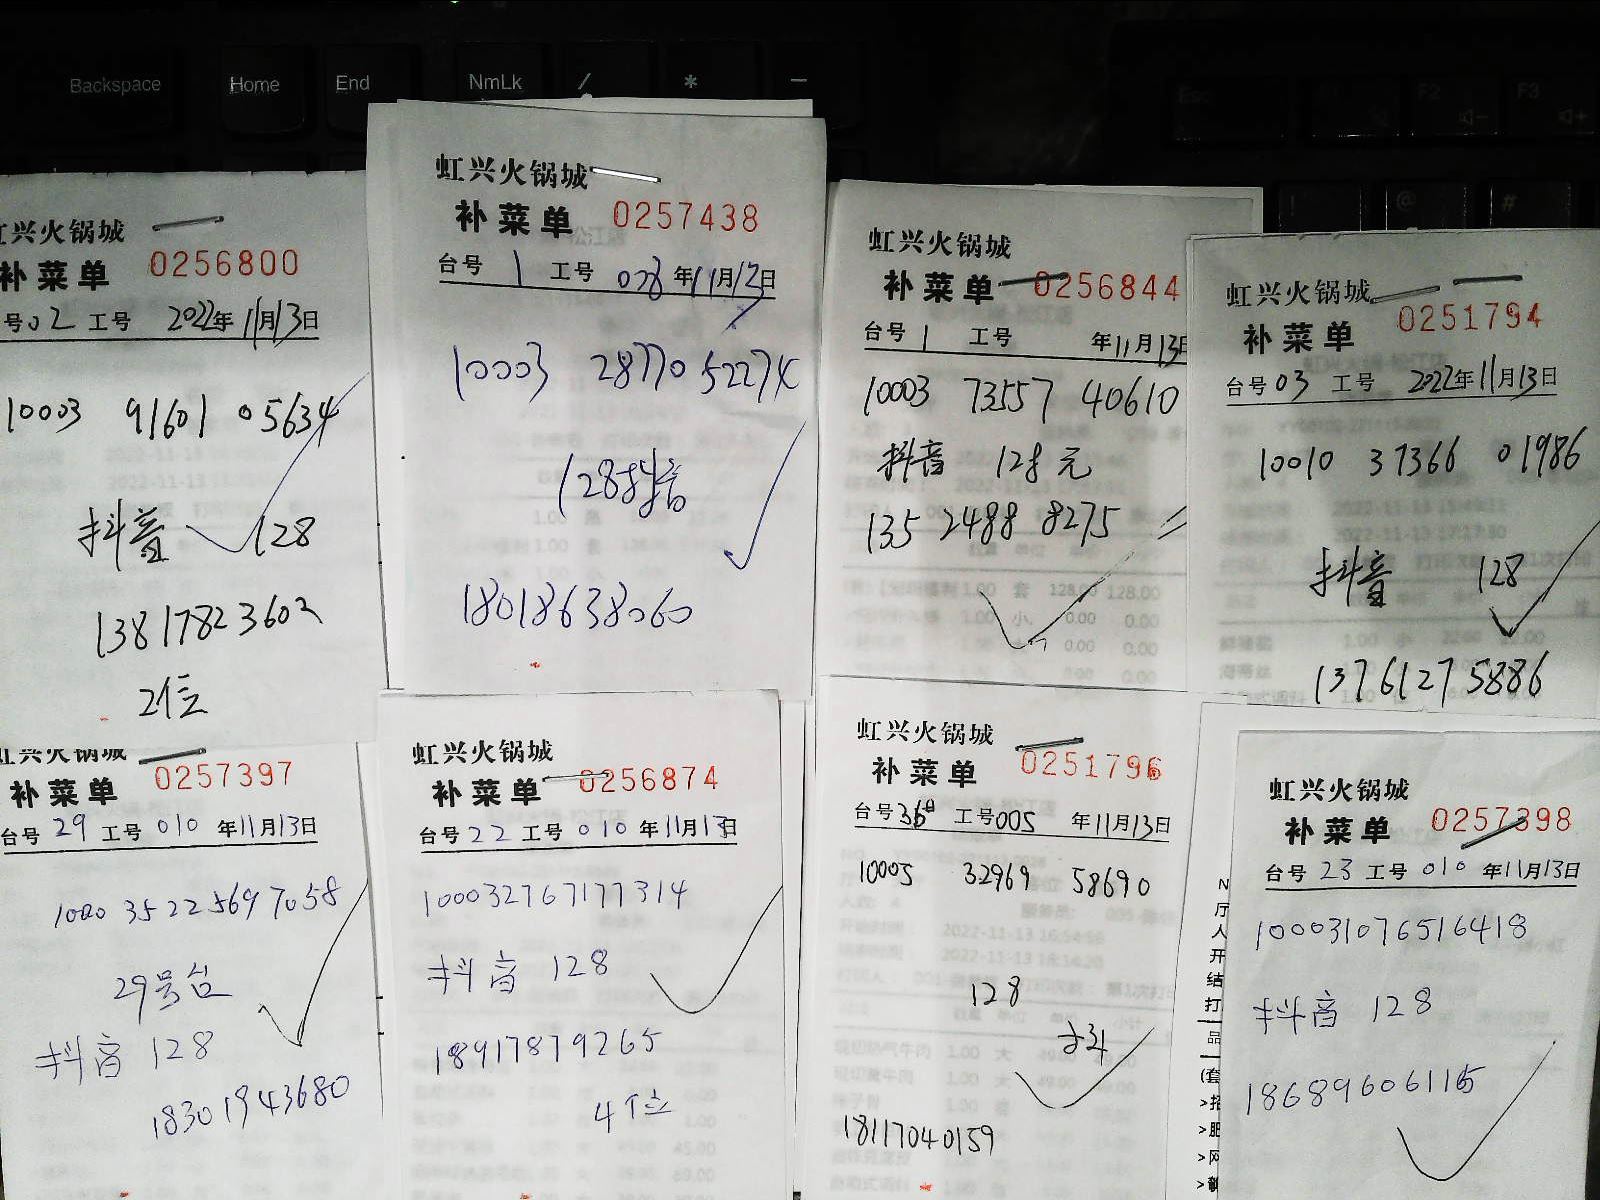 Backspace
Home
End
NmLk
/
*
-
F2
F3
@
#
虹兴火锅城
补菜单 0256800
号02 工号 2022年11月13日
10003 91601 05634
抖音 128
13817823602
2位
虹兴火锅城
补菜单 0257438
台号 1 工号 年11月13日
10003 28770 52274
128抖音
18018638060
虹兴火锅城
补菜单 0256844
台号 1 工号 年11月13日
10003 73557 40610
抖音 128元
135 2488 8275
虹兴火锅城
补菜单 0251794
台号 03 工号 2022年11月13日
10010 37366 01986
抖音 128
13761275886
虹兴火锅城
补菜单 0257397
台号 29 工号 010 年11月13日
1000 3522 569 7058
29号台
抖音 128
18301943680
虹兴火锅城
补菜单 0256874
台号 22 工号 010 年11月13日
100032767177314
抖音 128
18917879265
4个位
虹兴火锅城
补菜单 0251796
台号 工号 005 年11月13日
10005 32969 58690
128
18117040159
虹兴火锅城
补菜单 0257398
台号 23 工号 010 年11月13日
100031076516418
抖音 128